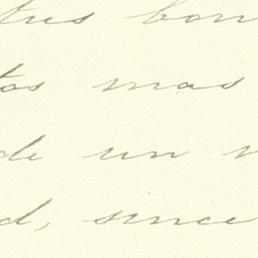 tus bon
tos mas
de un
d, since